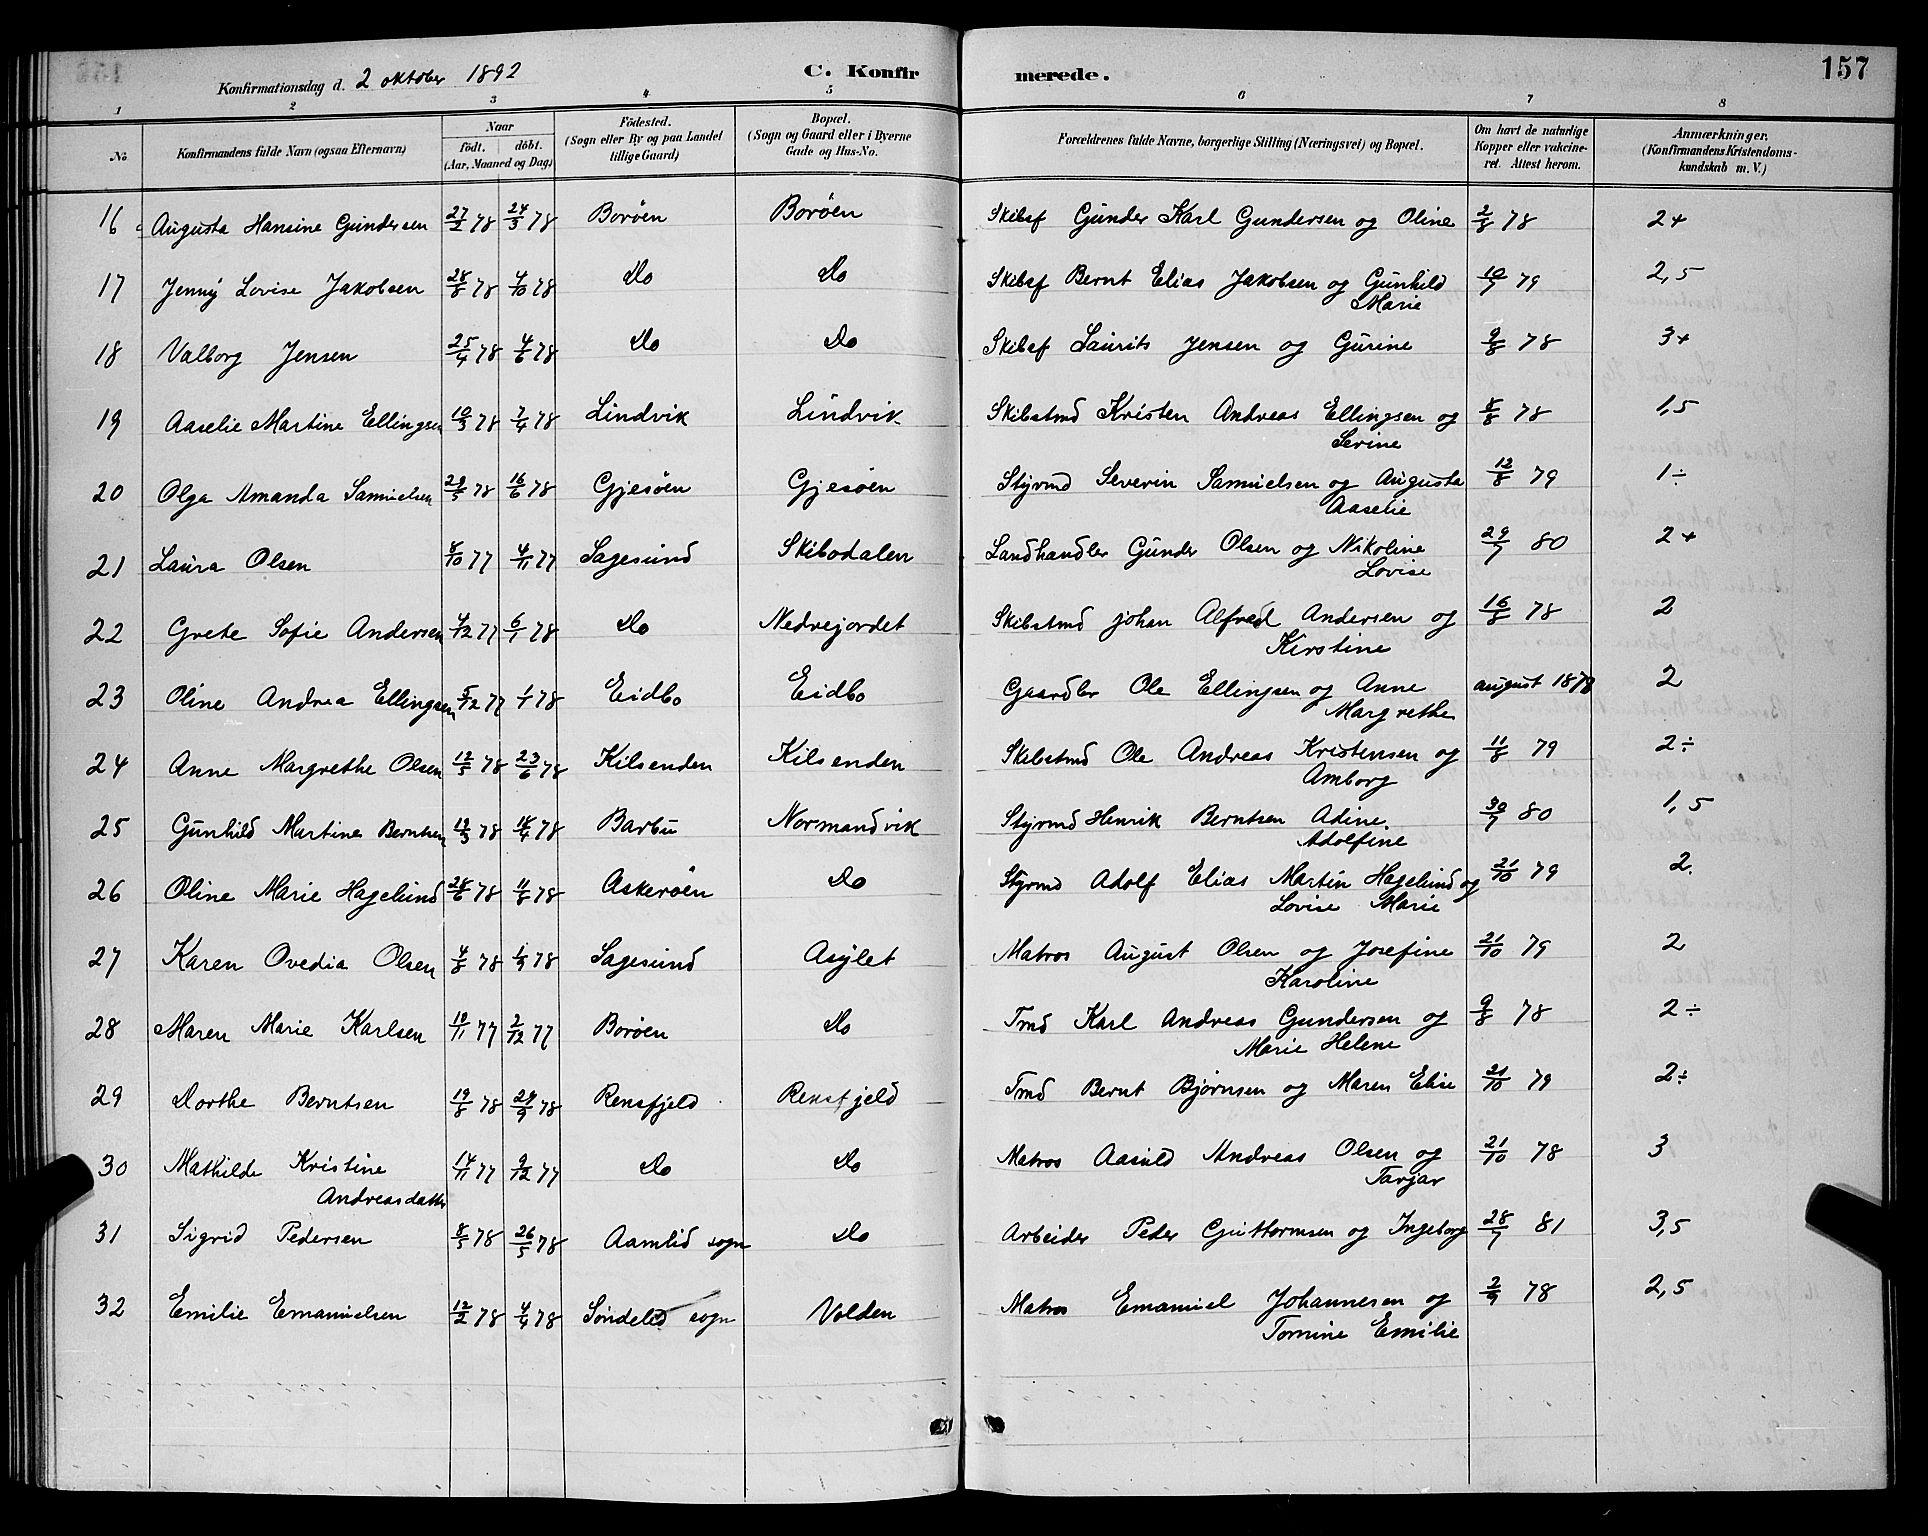 Konfirmationsdag d. 2 oktober 1892 C. Konfirmerede. 157
1 2 3 4 5 6 7 8
No Konfirmandens fulde Navn (ogsaa Efternavn) Naar födt. döbt. (Aar, Maaned og Dag) Födested. (Sogn eller By og paa Landet tillige Gaard) Bopæl. (Sogn og Gaard eller i Byerne Gade og Hus-No. Forældrenes fulde Navne, borgerlige Stilling (Næringsvei) og Bopæl. Om havt de naturlige Kopper eller vakcineret. Attest herom. Anmærkninger. (Konfirmandens Kristendomskundskab m. V.)
16 Augusta Hansine Gundersen 27/2 78 24/3 78 Boröen Boröen Skibsf Gunder Karl Gundersen og Oline 2/8 78 2+
17 Jenny Lovise Jakobsen 28/8 78 4/10 78 Do Do Skibsf Bernt Elias Jakobsen og Gunhild Marie 10/7 79 2,5
18 Valborg Jensen 25/4 78 4/6 78 Do Do Skibsf Laurits Jensen og Gurine 9/8 78 3+
19 Aaselie Martine Ellingsen 10/3 78 7/4 78 Lindvik Lindvik Skibstmd Kristen Andreas Ellingsen og Serine 5/8 78 1,5
20 Olga Amanda Samuelsen 29/5 78 16/6 78 Gjesöen Gjesöen Styrmd Severin Samuelsen og Augusta Aaselie 12/8 79 1÷
21 Laura Olsen 8/10 77 4/11 77 Sagesund Skibsdalen Landhandler Gunder Olsen og Nikoline Lovise 29/7 80 2+
22 Grete Sofie Andersen 4/12 77 6/1 78 Do Nedrejordet Skibstmd Johan Alfred Andersen og Kirstine 16/8 78 2
23 Oline Andrea Ellingsen 5/12 77 1/1 78 Eidbo Eidbo Gaardbr Ole Ellingsen og Anne Margrethe august 1878 2
24 Anne Margrethe Olsen 12/5 78 23/6 78 Kilsenden Kilsenden Skibstmd Ole Andreas Kristensen og Amborg 11/8 79 2÷
25 Gunhild Martine Berntsen 12/3 78 14/4 78 Barbu Normandvik Styrmd Henrik Berntsen Adine Adolfine 30/7 80 1,5
26 Oline Marie Hagelund 28/6 78 11/8 78 Askeröen Do Styrmd Adolf Elias Martin Hagelund og Lovise Marie 21/10 79 2.
27 Karen Ovedia Olsen 4/8 78 1/9 78 Sagesund Asylet Matros August Olsen og Josefine Karoline 21/10 79 2
28 Maren Marie Karlsen 10/11 77 2/12 77 Boröen Do Tmd Karl Andreas Gundersen og Marie Helene 9/8 78 2÷
29 Dorthe Berntsen 19/8 78 29/9 78 Rensfjeld Rensfjeld Tmd Bernt Bjørnsen og Maren Elise 21/10 79 2÷
30 Mathilde Kristine Andreasdatter 14/11 77 9/12 77 Do Do Matros Aasuld Andreas Olsen og Tarjar 21/10 78 3
31 Sigrid Pedersen 8/5 78 26/5 78 Aamlid sogn Do Arbeider Peder Guttormsen og Ingeborg 28/7 81 3,5
32 Emilie Emanuelsen 12/2 78 4/4 78 Söndeled sogn Volden Matros Emanuel Johannesen og Tomine Emilie 2/9 78 2,5